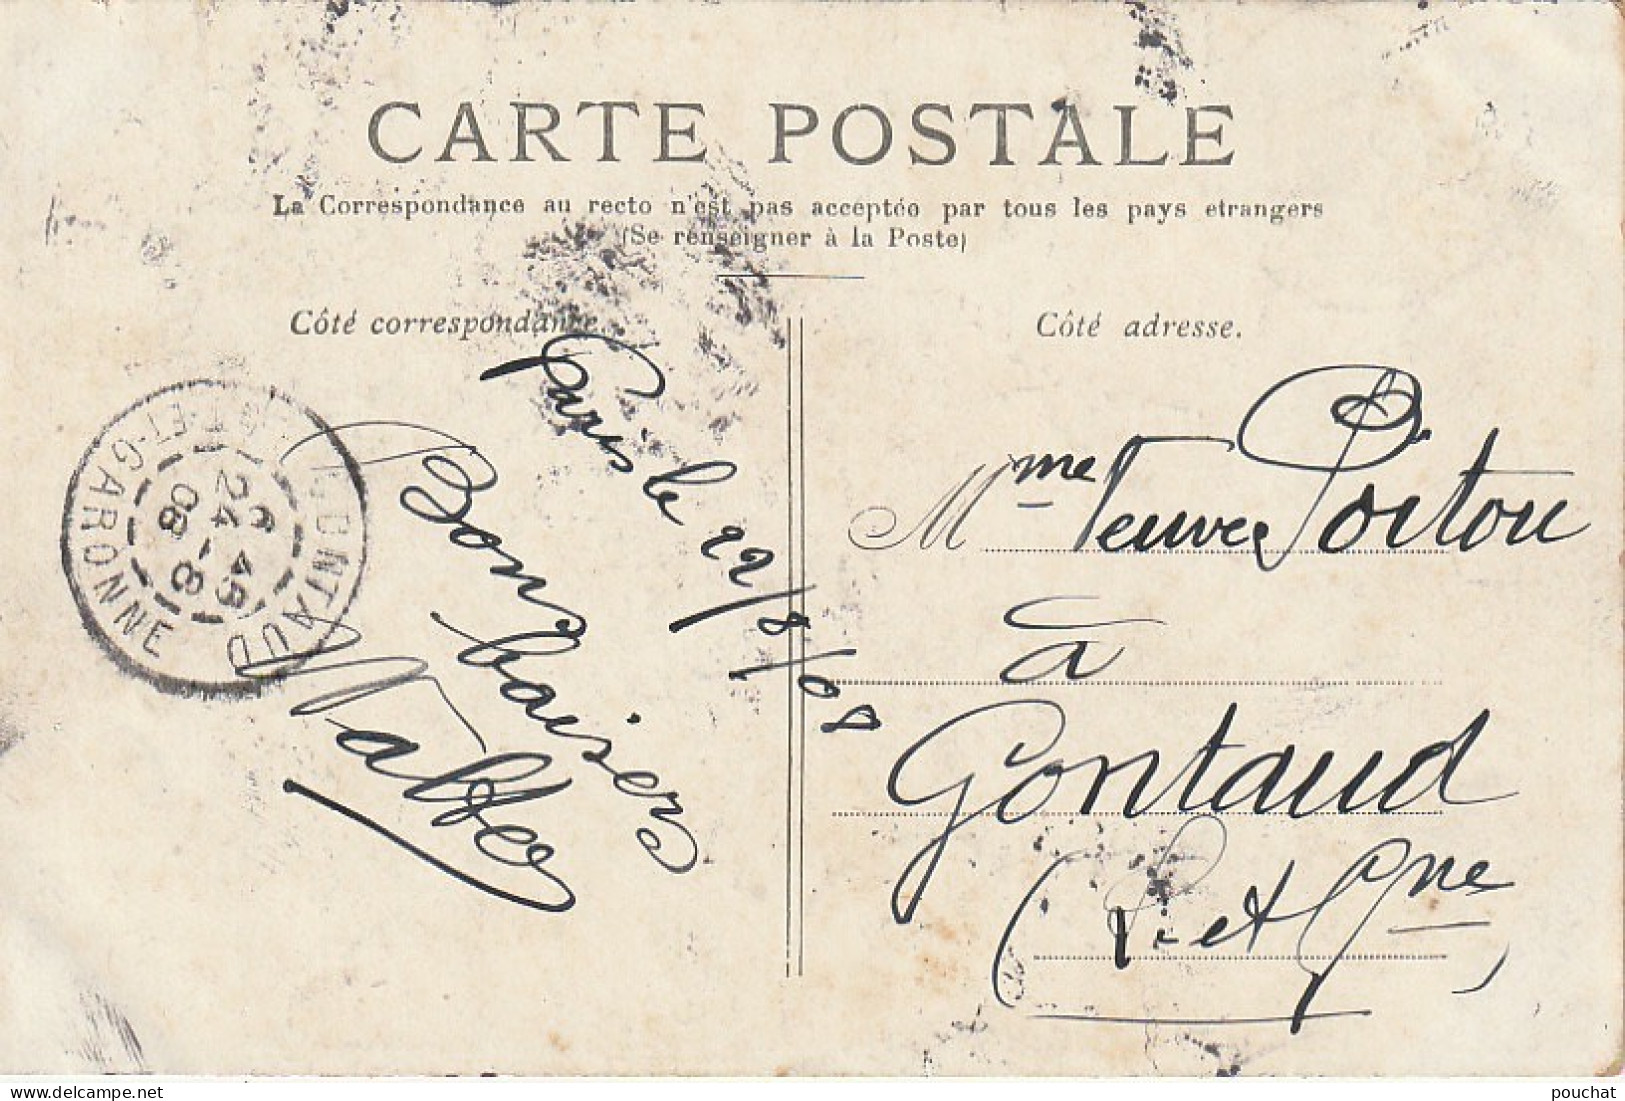 CARTE POSTALE
La Correspondance au recto n'est pas acceptée par tous les pays étrangers
(Se renseigner à la Poste)
Côté correspondance.
Paris le 22/8/08
Bons baisers
Côté adresse.
Mme Veuve Poitou
à
Gontaud
(L. et Gne)
GONTAUD
LOT-ET-GARONNE
6 45
24 - 8
08
delcampe.net
pouchat